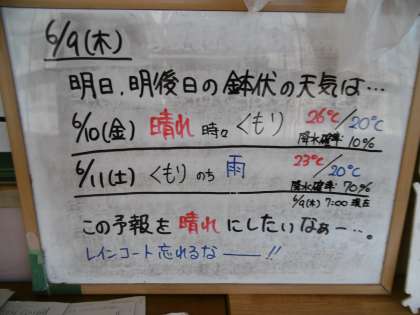 6/9(木)
明日、明後日の鉢伏の天気は…
6/10(金) 晴れ 時々 くもり 26℃/20℃
降水確率 10%
6/11(土) くもり のち 雨 23℃/20℃
降水確率 70%
6/9(木) 7:00 現在
この予報を晴れにしたいなぁー…。
レインコート忘れるなー!!